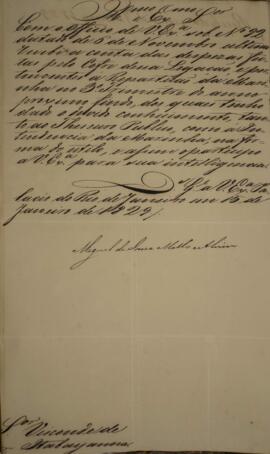 Illmo. e Exmo. Snr.
Com o Officio de V. Exa. sob No. 22
datado de 5 de Novembro ultimo
recebi as contas das despezas fei-
tas pelo Cofre dessa Legação, e per-
tencentes a Repartição da Mari-
nha no 3o. Trimestre do anno
proximo findo, das quaes tenho
dado o devido conhecimento, tanto
ao Thesouro Publico, como a In-
tendencia da Marinha, na for-
ma do estilo, e assim o participo
a V. Exa. para sua intelligencia.
Ds. Ge. a V. Exa. Pa-
lacio do Rio de Janeiro em 15 de
Janeiro de 1829
Miguel de Souza Mello e Alvim
Snr. Visconde de
Itabayanna